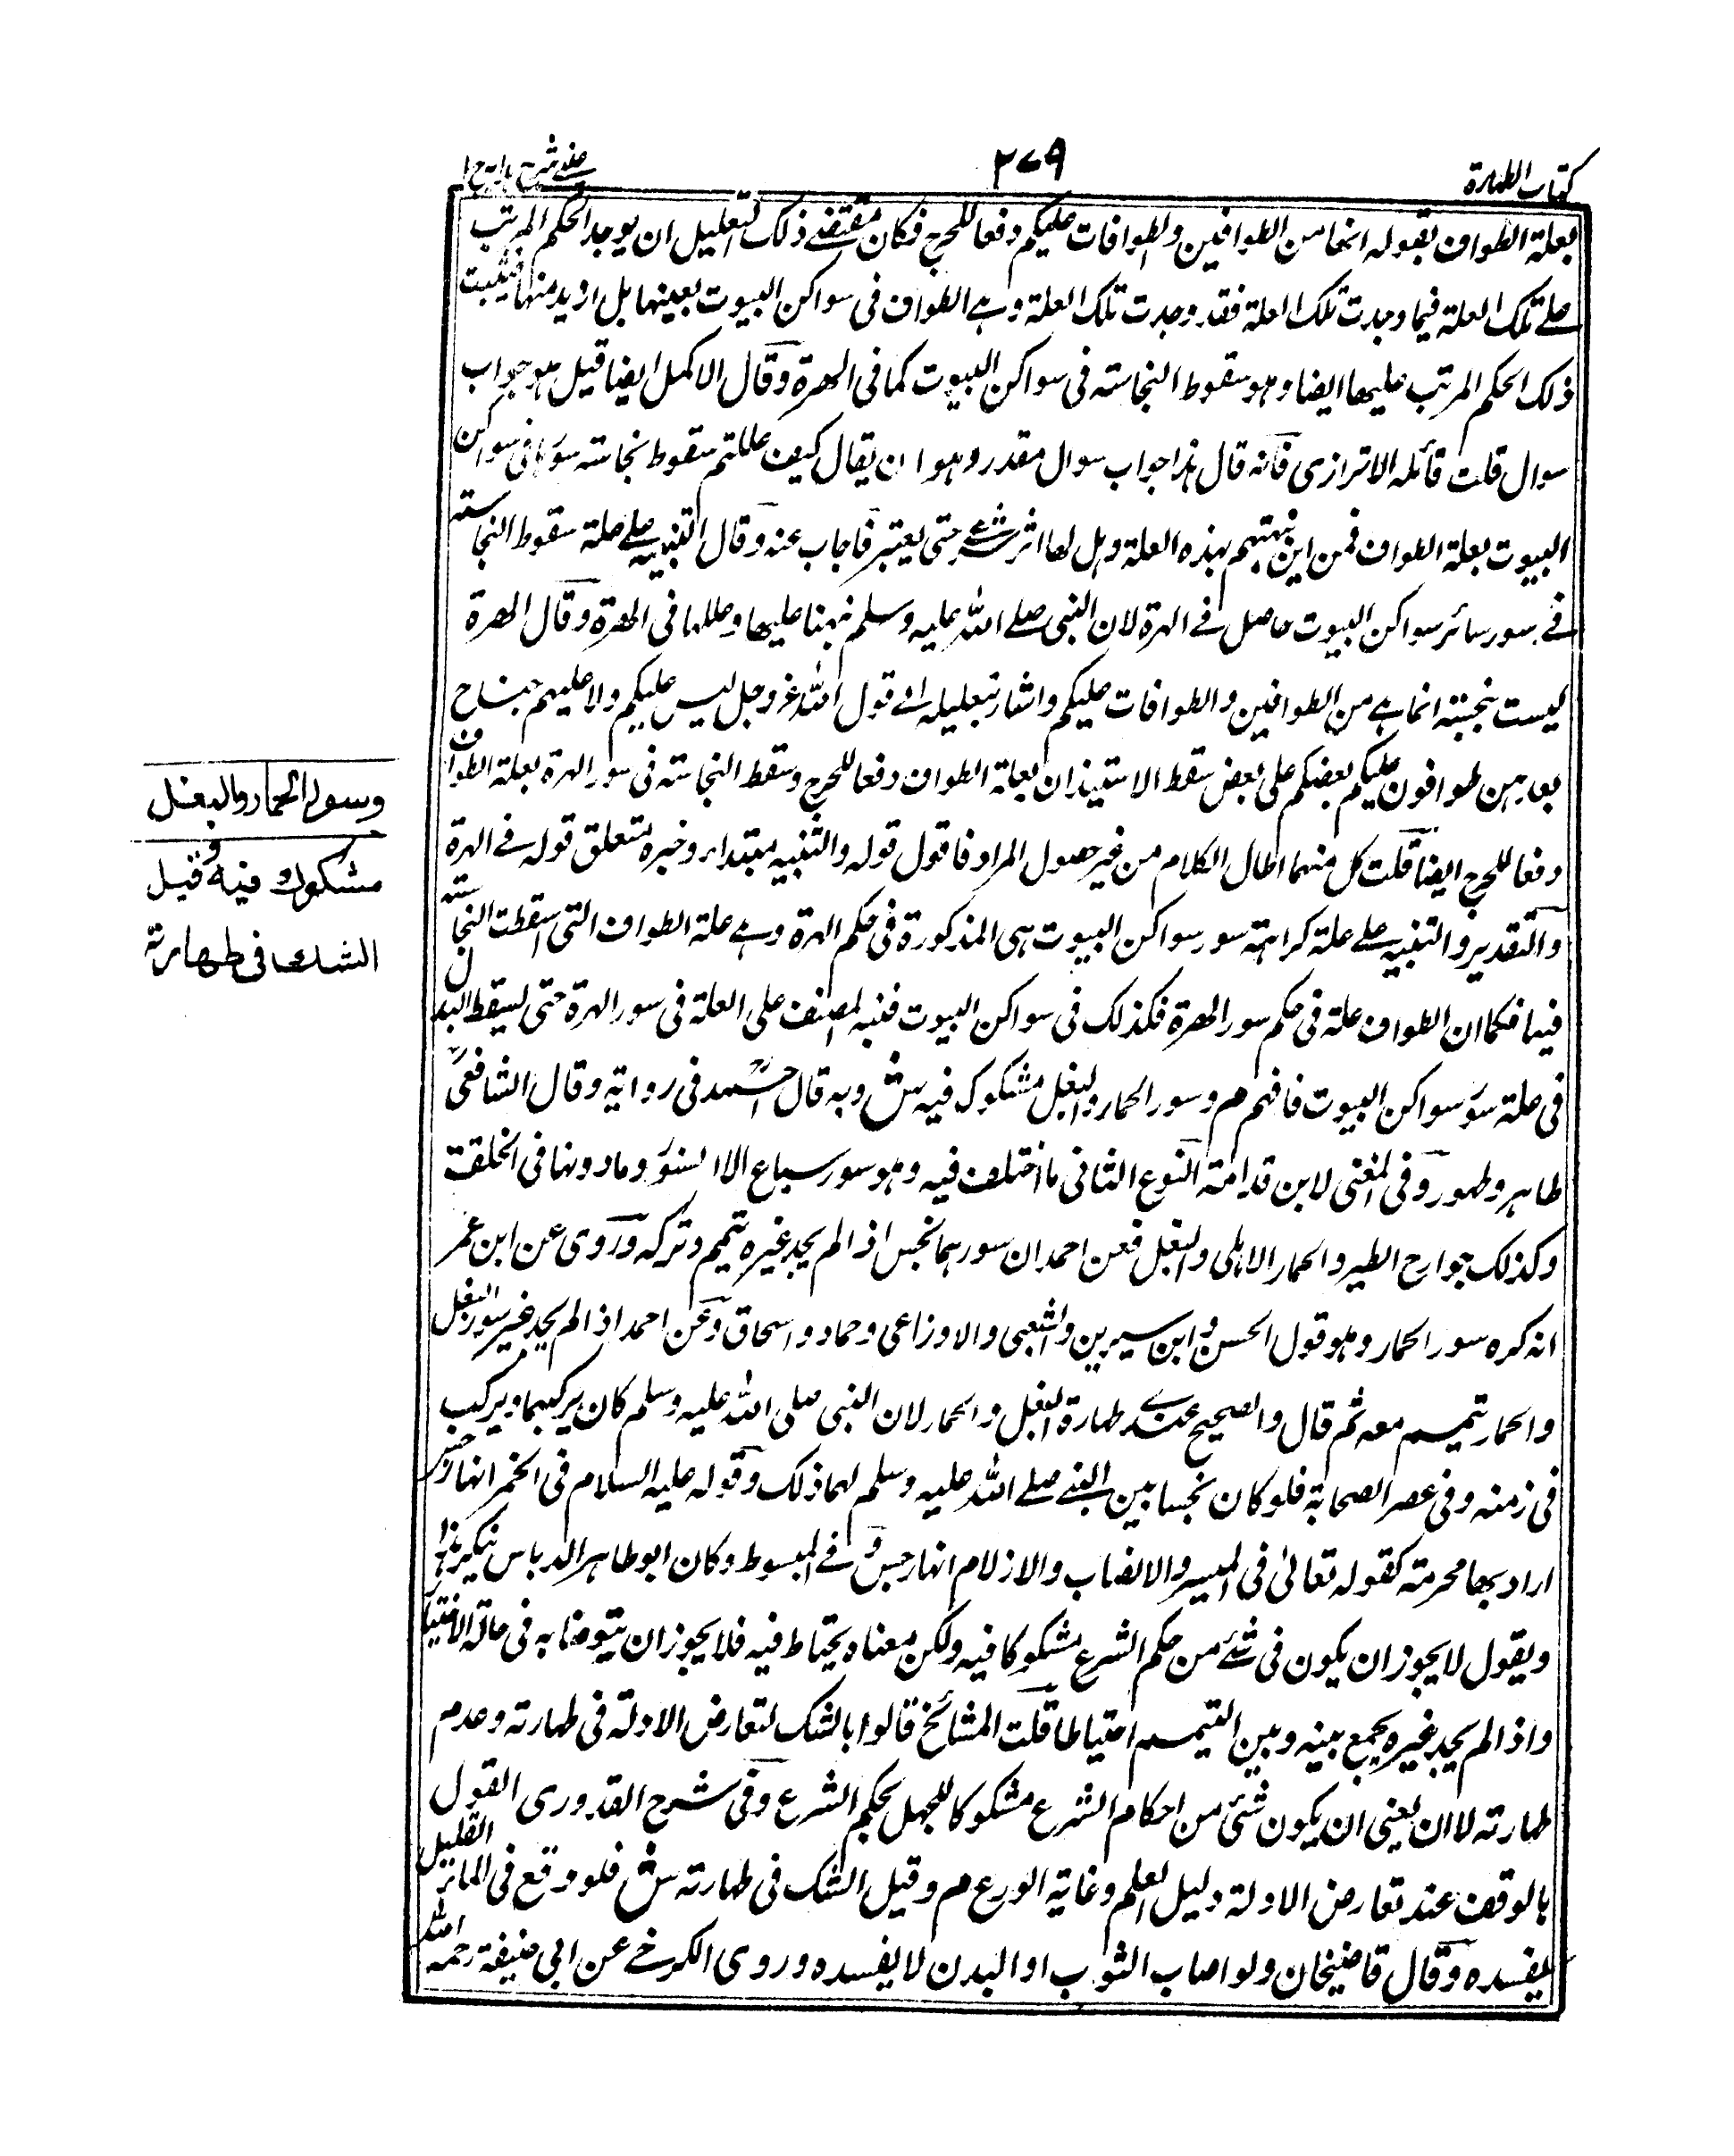 كتاب الطهارة
٢٧٩
عينى شرح هدايه ج ١
بعلة الطواف بقوله انها من الطوافين والطوافات عليكم دفعا للحرج فكان مقتضى ذلك التعليل ان يوجد الحكم المرتب
على تلك العلة فيما وجدت تلك العلة فقد وجدت تلك العلة وهى الطواف فى سواكن البيوت بعينها بل ازيد منها فيثبت
ذلك الحكم المرتب عليها ايضا وهو سقوط النجاسة فى سواكن البيوت كما فى الهرة وقال الاكمل ايضا قيل هو جواب
سوال قلت قائله الاترازى فانه قال هذا جواب سوال مقدر وهو ان يقال كيف عللتم سقوط نجاسة سؤر ما فى سواكن
البيوت بعلة الطواف فمن اين نبهتم بهذه العلة وهل لها اثر شرعى حتى يعتبر فاجاب عنه وقال التنبيه على علة سقوط النجاسة
فى سور سائر سواكن البيوت حاصل فى الهرة لان النبى صلى الله عليه وسلم نبهنا عليها وعللها فى الهرة وقال الهرة
ليست بنجسة انما هى من الطوافين والطوافات عليكم واشار بتعليله الى قول الله عز وجل ليس عليكم ولا عليهم جناح
بعدهن طوافون عليكم بعضكم على بعض سقط الاستيذان بعلة الطواف دفعا للحرج وسقط النجاسة فى سور الهرة بعلة الطواف
دفعا للحرج ايضا قلت كل منهما اطال الكلام من غير حصول المراد فاقول قوله والتنبيه مبتداء وخبره متعلق قوله فى الهرة
والتقدير والتنبيه على علة كراهة سور سواكن البيوت هى المذكورة فى حكم الهرة وهى علة الطواف التى اسقطت النجاسة
فيها فكما ان الطواف علة فى حكم سور الهرة فكذلك فى سواكن البيوت فنبه المصنف على العلة فى سور الهرة حتى ليسقط البدل
فى علة سؤر سواكن البيوت فافهم م وسور الحمار والبغل مشكوك فيه ش وبه قال احمد فى رواية وقال الشافعى
طاهر وطهور وفى المغنى لابن قدامة النوع الثانى ما اختلف فيه وهو سور سباع الا السنور وما دونها فى الخلقة
وكذلك جوارح الطير والحمار الاهلى والبغل فعن احمد ان سورهما نجس اذا لم يجد غيره تيمم وتركه وروى عن ابن عمر
انه كره سور الحمار وهو قول الحسن وابن سيرين والشعبى والاوزاعى وحماد واسحاق وعن احمد اذا لم يجد غير سور البغل
والحمار تيمم معه ثم قال والصحيح عندى طهارة البغل والحمار لان النبى صلى الله عليه وسلم كان يركبهما ويركب
فى زمنه وفى عصر الصحابة فلو كان نجسا بين النبى صلى الله عليه وسلم لهما ذلك وقوله عليه السلام فى الخمر انها رجس
اراد بها محرمة كقوله تعالى فى الميسر والانصاب والازلام انها رجس وفى المبسوط وكان ابو طاهر الدباس ينكر هذا
ويقول لا يجوز ان يكون فى شئ من حكم الشرع مشكوكا فيه ولكن معناه يحتاط فيه فلا يجوز ان يتوضأ به فى حالة الاختيار
واذا لم يجد غيره يجمع بينه وبين التيمم احتياطا قلت المشائخ قالوا بالشك لتعارض الادلة فى طهارته وعدم
طهارته لا ان يعنى ان يكون شئ من احكام الشرع مشكوكا للجهل بحكم الشرع وفى شرح القدورى القول
بالوقف عند تعارض الادلة دليل العلم وغاية الورع م وقيل الشك فى طهارته ش فلو وقع فى الماء القليل
يفسده وقال قاضيخان ولو اصاب الثوب او البدن لا يفسده وروى الكرخى عن ابى حنيفة رحمه الله
وسور الحمار والبغل
مشكوك فيه وقيل
الشك فى طهارته